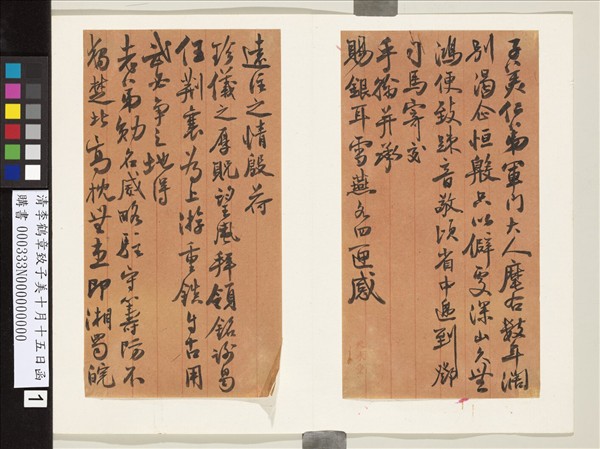 子美仁弟軍門大人麾右數年濶
別渴企恒殷只以僻處深山久無
鴻便致疎音敬頃省中遞到鄧
司馬寄交
手翰并承
賜銀耳雪燕各四匣感
遠注之情殷荷
珍儀之厚貺望風拜領銘謝曷
任荆襄為上游重鎮自古用
武必爭之地得
老弟勛名威略駐守籌防不
獨楚北高枕無虞即湘蜀皖
清李鶴章致子美十月十五日函
購書 000333N000000000
1